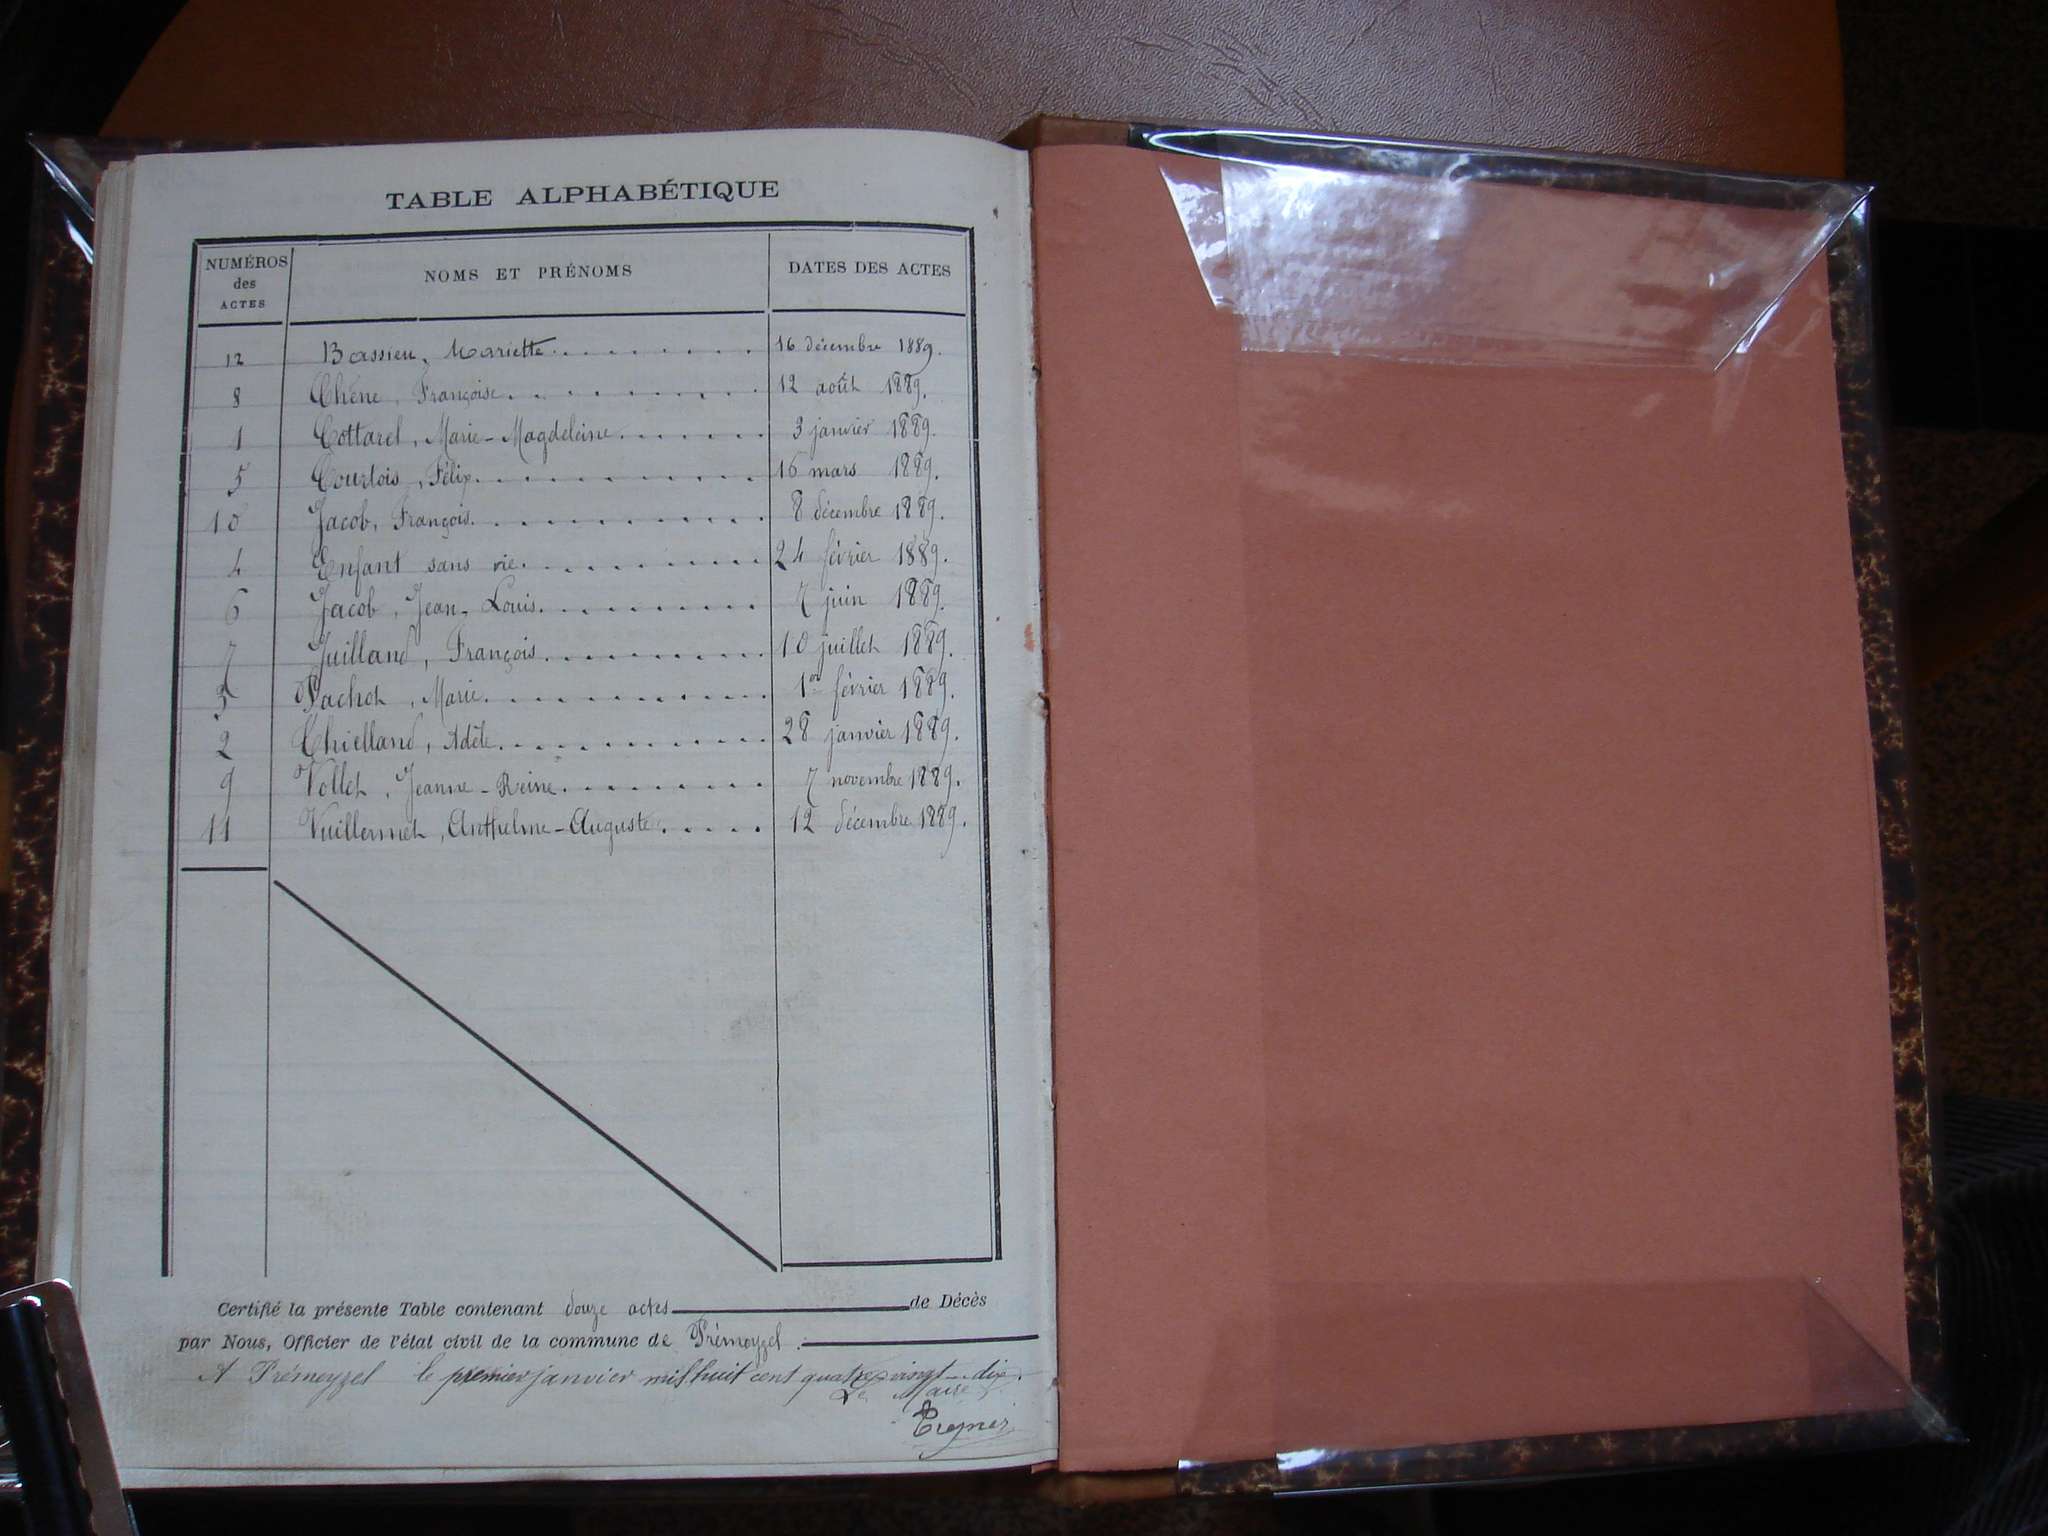 TABLE ALPHABÉTIQUE
NUMÉROS des ACTES NOMS ET PRÉNOMS DATES DES ACTES
12 Bassieu, Mariette 16 décembre 1889.
8 Chêne, Françoise 12 août 1889.
1 Cottarel, Marie-Magdeleine 3 janvier 1889.
5 Courtois, Félix 16 mars 1889.
10 Jacob, François 8 décembre 1889.
4 Enfant sans vie 24 février 1889.
6 Jacob, Jean-Louis 7 juin 1889.
7 Juilland, François 10 juillet 1889.
3 Pachot, Marie 1er février 1889.
2 Thielland, Adèle 28 janvier 1889.
9 Vollet, Jeanne-Reine 7 novembre 1889.
11 Vuillermet, Anthelme-Auguste 12 décembre 1889.
Certifié la présente Table contenant douze actes de Décès
par Nous, Officier de l'état civil de la commune de Prémeyzel.
A Prémeyzel le premier janvier mil huit cent quatre vingt-dix.
Le Maire